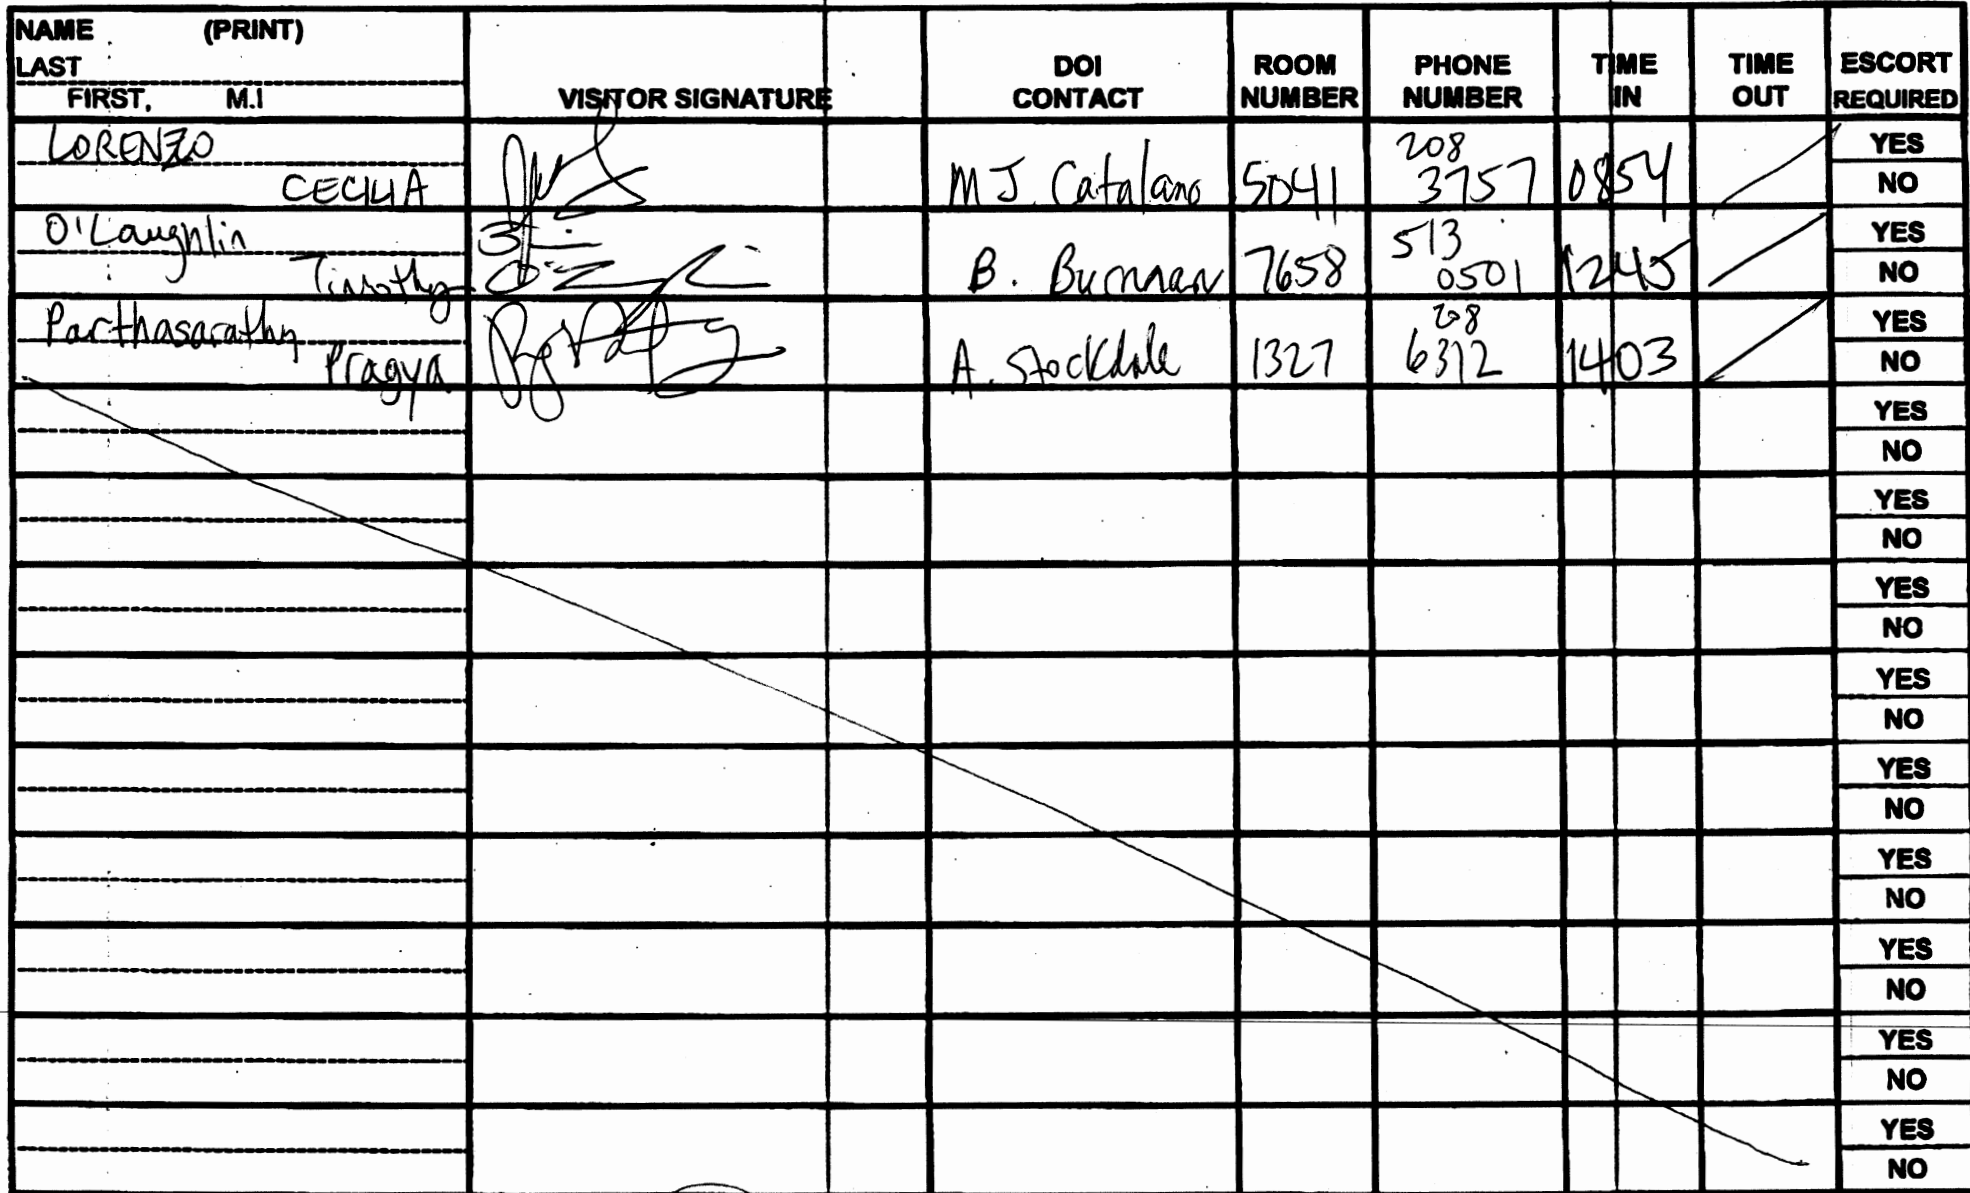 NAME (PRINT)
LAST
FIRST, M.I
VISITOR SIGNATURE
DOI
CONTACT
ROOM
NUMBER
PHONE
NUMBER
TIME
IN
TIME
OUT
ESCORT
REQUIRED
LORENZO
CECILIA
M J. Catalano
5041
208
3757
0854
YES
NO
O'Laughlin
Timothy
B.
7658
513
0501
1245
YES
NO
Parthasarathy
Pragya
A. Stockdale
1327
208
6312
1403
YES
NO
YES
NO
YES
NO
YES
NO
YES
NO
YES
NO
YES
NO
YES
NO
YES
NO
YES
NO